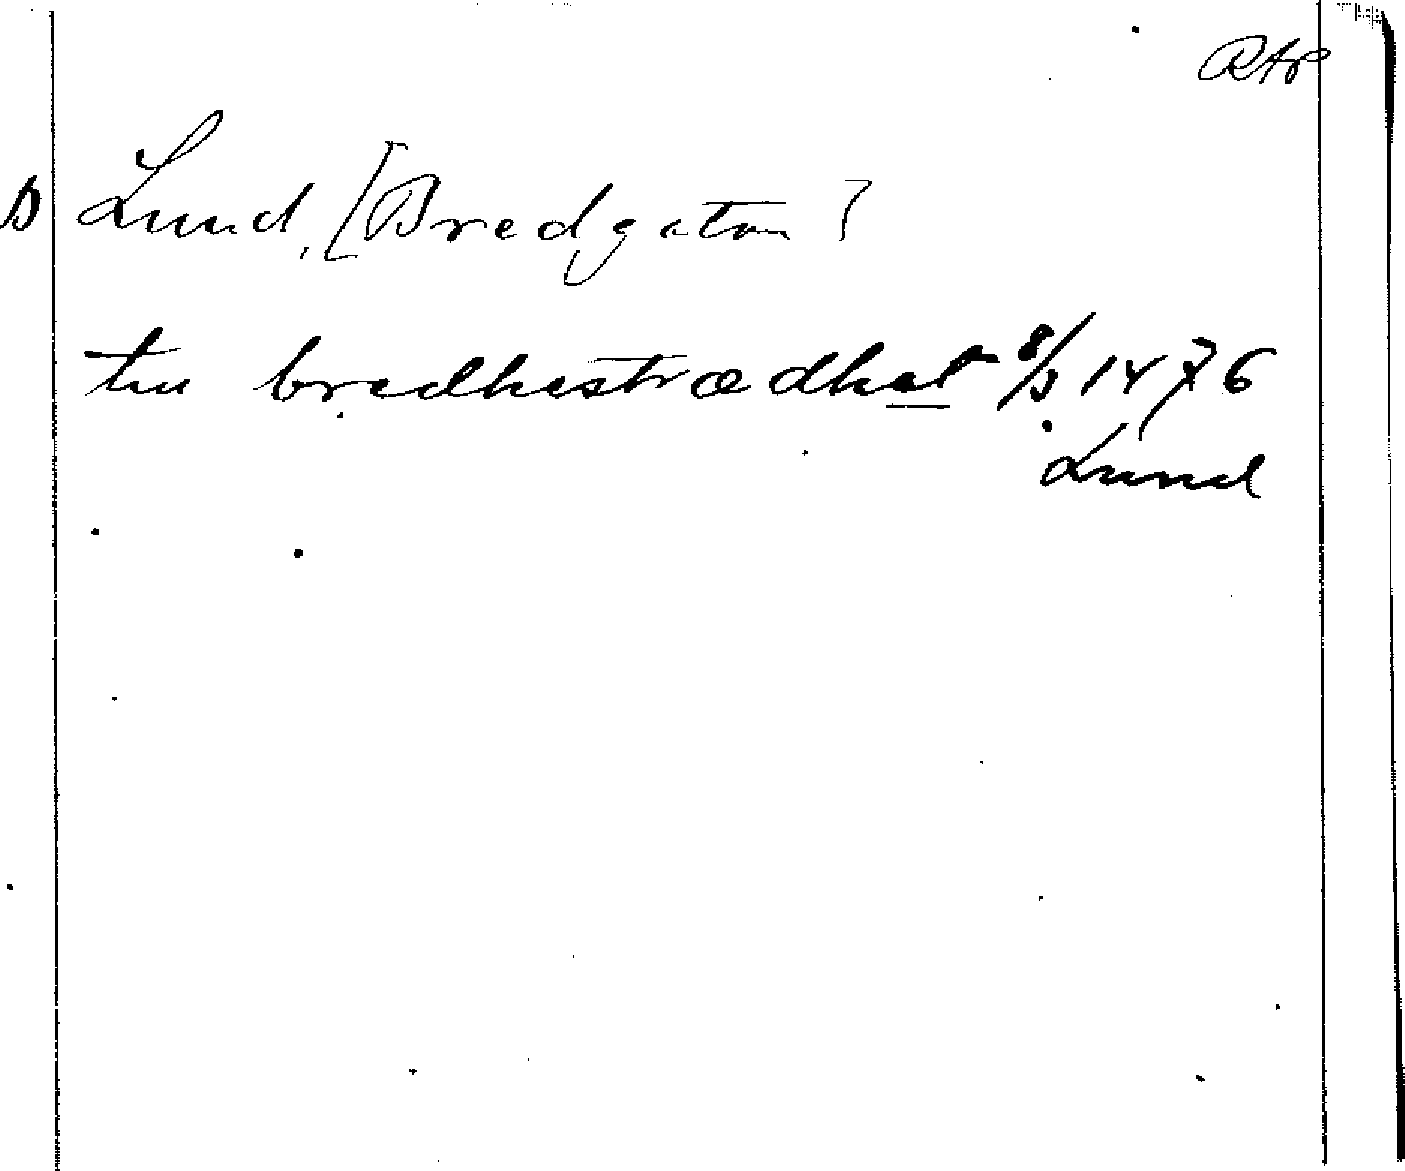 RAP
D Lund, [Bredgatan]
tili bredhestrædhet 8/3 1476
Lund